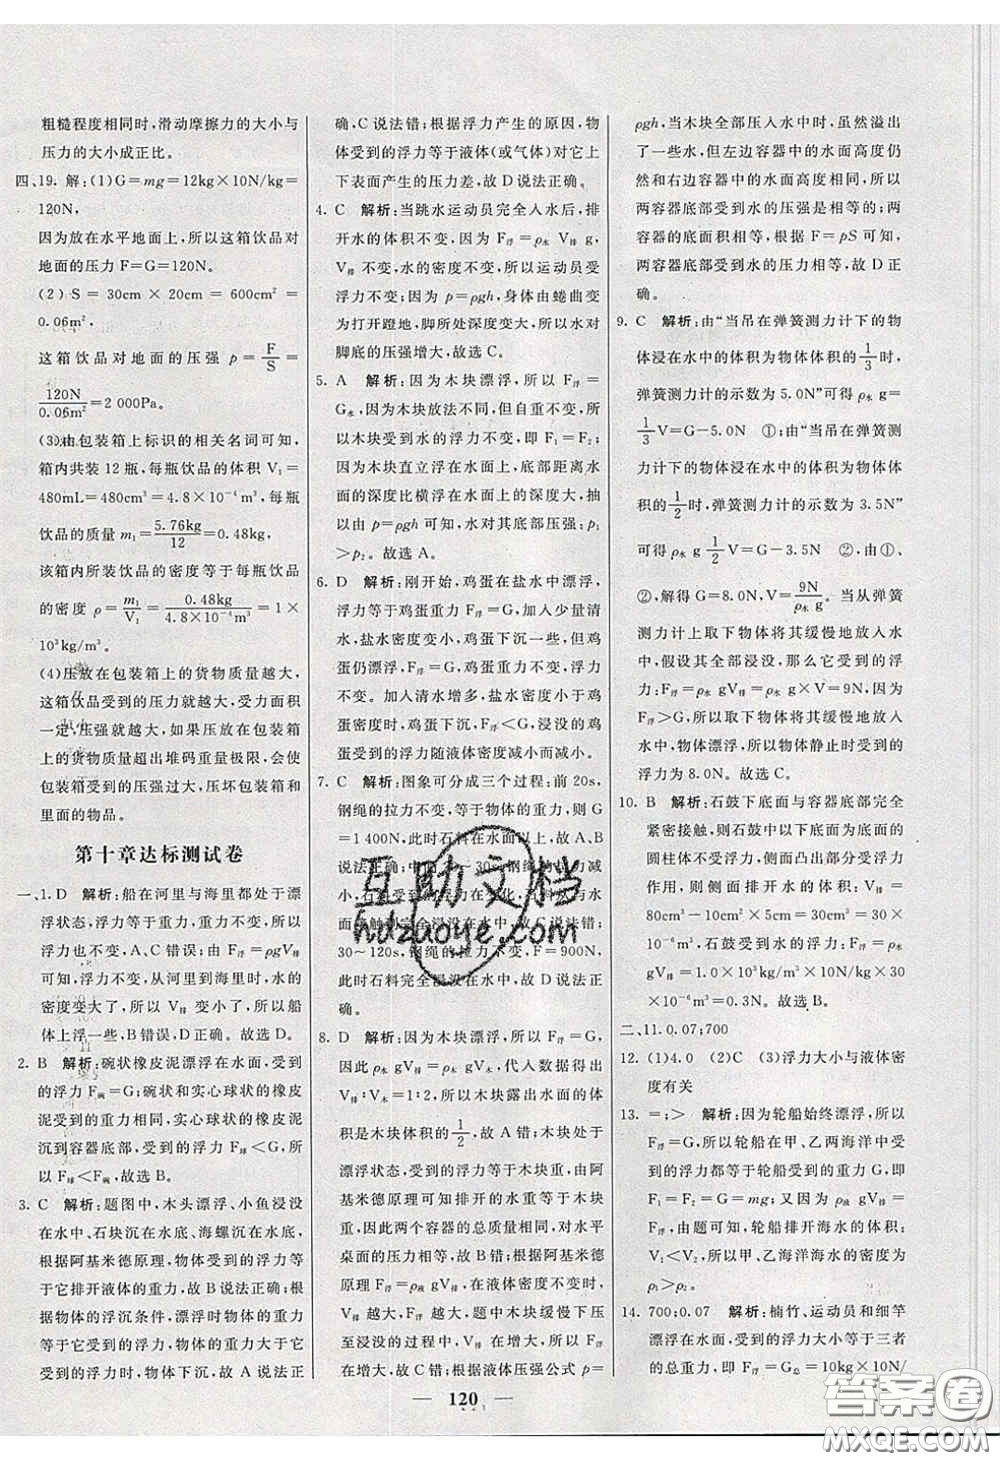 粗糙程度相同时,滑动摩擦力的大小与
压力的大小成正比。
四、19. 解:(1)G=mg=12kg×10N/kg=
120N
因为放在水平地面上,所以这箱饮品对
地面的压力 F=G=120N。
(2) S = 30cm × 20cm = 600cm² =
0.06m²,
这箱饮品对地面的压强 p=F/S=
120N/0.06m²=2 000Pa。
(3)由包装箱上标识的相关名词可知,
箱内共装 12 瓶,每瓶饮品的体积 V₁=
480mL=480cm³=4.8×10⁻⁴m³,每瓶
饮品的质量 m₁=5.76kg/12=0.48kg,
该箱内所装饮品的密度等于每瓶饮品
的密度 ρ=m₁/V₁=0.48kg/4.8×10⁻⁴m³=1×
10³kg/m³。
(4)压放在包装箱上的货物质量越大,
这箱饮品受到的压力就越大,受力面积
一定,压强就越大,如果压放在包装箱
上的货物质量超出堆码重量极限,包装
箱会使饮品受到的压强过大,压坏包装箱和
里面的物品。
第十章达标测试卷
一、1. D 解析:船在河里与海里都处于漂
浮状态,浮力等于重力,重力不变,所以
浮力也不变,A、C 错误;由 F浮=ρgV排
可知,浮力不变,从河里到海里时,水的
密度变大了,所以 V排 变小了,所以船
体上浮一些,B 错误,D 正确。故选 D。
2. B 解析:碗状橡皮泥漂浮在水面,受到
的浮力 F碗=G;碗状和实心球状的橡皮
泥受到的重力相同,实心球状的橡皮泥
沉到容器底部,受到的浮力 F球<G,所
以 F球<F碗,故选 B。
3. C 解析:题图中,木头漂浮、小鱼浸没
在水中、石块沉在水底、海螺沉在水底,
根据阿基米德原理,物体受到的浮力等
于它排开液体的重力,故 B 说法正确;
根据物体的浮沉条件,漂浮时物体的重力
等于它受到的浮力,物体的重力大于它
受到的浮力,物体下沉,故 A 说法正
确,C 说法错;根据浮力产生的原因,物
体受到的浮力等于液体(或气体)对它
上下表面产生的压力差,故 D 说法正确。
4. C 解析:当跳水运动员完全入水后,排
开水的体积不变,因为 F浮=ρ水 V排 g,
V排 不变,水的密度不变,所以运动员受
浮力不变;因为 p=ρgh,身体由蜷曲变
为打开蹬地,脚所处深度变大,所以水对
脚底的压强增大,故选 C。
5. A 解析:因为木块漂浮,所以 F浮=
G木,因为木块放法不同,但自重不变,
所以木块受到水的浮力不变,即 F₁=F₂;
因为木块直立浮在水面上,底部距离水
面的深度比横浮在水面上的深度大,所
以由 p=ρgh 可知,水对其底部压强:p₁
>p₂。故选 A。
6. D 解析:刚开始,鸡蛋在盐水中漂浮,
浮力等于鸡蛋重力 F浮=G,加入少量清
水,盐水密度变小,鸡蛋下沉一些,但鸡
蛋仍漂浮,F浮=G,鸡蛋受到的浮力不
变。加入清水增多,盐水密度小于鸡蛋
密度时,鸡蛋下沉,F浮<G,浸没的鸡
蛋受到的浮力随液体密度减小而减小。
7. C 解析:图象可分成三个过程:前 20s,
钢绳的拉力不变,等于物体的重力,所以 G
=1 400N,此时石料在水面以上,故 A、B
30~120s,钢绳的拉力不变,F=900N,
此时石料完全浸没在水中,故 D 说法正
确。
8. D 解析:因为木块漂浮,所以 F浮=G,
所以 ρ水 gV排=ρ木 gV木,代入数据得出
V排∶V木=1∶2,所以木块露出水面的体
积是木块体积的1/2,故 A 错;木块处于
漂浮状态,受到的浮力等于木块重,由阿
基米德原理可知排开的水重等于木块
重,因此两个容器的总质量相同,对水平
桌面的压力相等,故 B 错;由阿基米德
原理 F浮=ρ液 gV排 在液体密度不变时,
V排 越大,F浮 越大,题中木块缓慢下压
至浸没的过程中,V排 在增大,所以 F浮
在增大,故 C 错;根据液体压强公式 p=
ρgh,当木块全部压入水中时,虽然溢出
了一些水,但左边容器中的水面高度仍
然和右边容器中的水面高度相同,所以
两容器底部受到水的压强是相等的;两
容器的底面积相等,根据 F=pS 可知,
两容器底部受到水的压力相等,故 D 正
确。
9. C 解析:由“当吊在弹簧测力计下的物
体浸在水中的体积为物体体积的1/3时,
弹簧测力计的示数为 5.0N”可得 ρ水 g=
1/3V=G-5.0N ①;由“当吊在弹簧测
力计下的物体浸在水中的体积为物体体
积的1/2时,弹簧测力计的示数为 3.5N”
可得 ρ水 g 1/2V=G-3.5N ②,由①、
②,解得 G=8.0N,V=9N/ρ水 g。当从弹簧
测力计上取下物体将其缓慢地放入水中
时,使其全部浸没,那么它受到的浮力
F浮=ρ水 gV排=ρ水 gV=9N,因为
F浮>G,所以取下物体将其缓慢地放入
水中,物体漂浮,所以物体静止时受到的
浮力为 8.0N。故选 C。
10. B 解析:石鼓下底面与容器底部完全
紧密接触,则石鼓中间与下底面等面积的
圆柱体部分不受浮力,凸出部分受浮力
作用,则侧面排开水的体积:V=
80cm³-10cm²×5cm=30cm³=30×
10⁻⁶m³,石鼓受到水的浮力:F浮=ρ水
gV排=1.0×10³kg/m³×10N/kg×30×
10⁻⁶m³=0.3N。故选 B。
二、11. 0.07;700
12. (1)4.0 (2)C (3)浮力大小与液体密
度有关
13. =;> 解析:因为轮船始终漂浮,F浮=
G,所以轮船在甲、乙两海洋中受到的
浮力都等于轮船受到的重力 G,即
F₁=F₂=G=mg;又因为 F浮=ρ液
gV排,由题可知,轮船排开海水的体积:
V₁<V₂,所以甲、乙海洋海水的密度为
ρ₁>ρ₂。
14. 700;0.07 解析:楠竹、运动员和细竿
漂浮在水面,受到的浮力大小等于三者
的总重力,即 F浮=G总=10kg×10N/
120
互助文档
huzuoye.com
答案圈
MXQE.COM